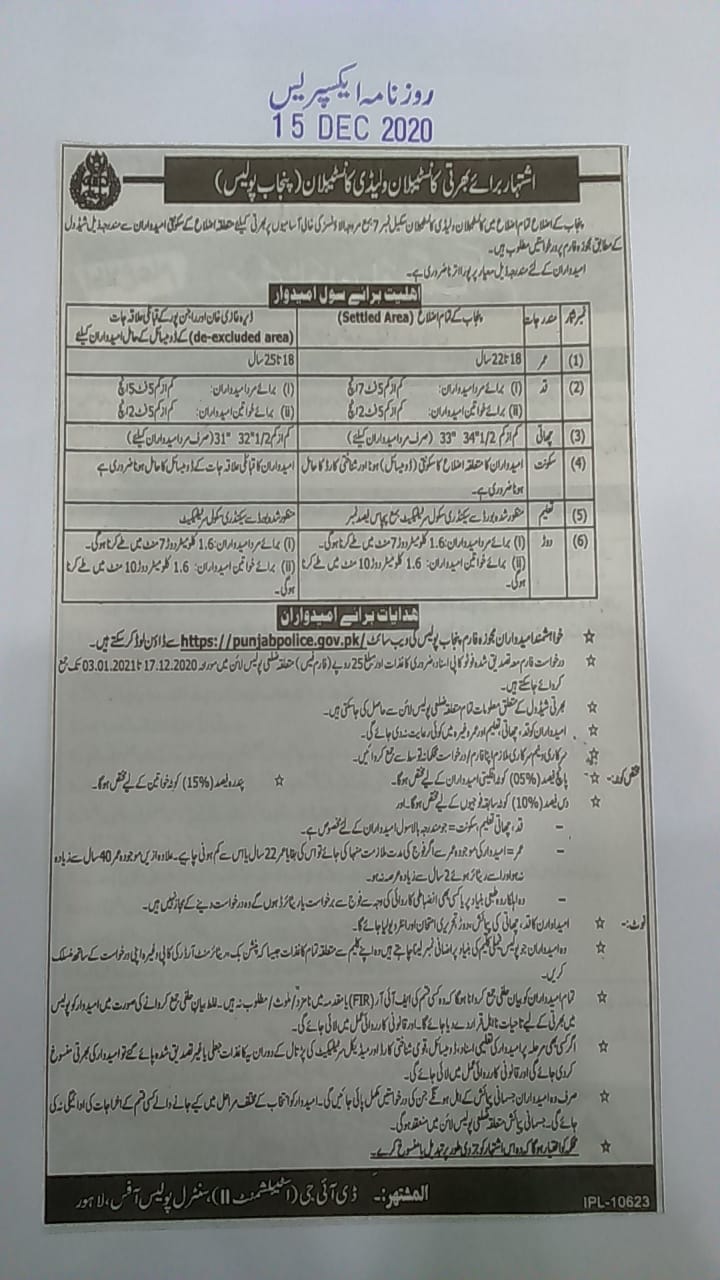 روزنامہ ایکسپریس
15 DEC 2020
اشتہار برائے بھرتی کانسٹیبلان ولیڈی کانسٹیبلان (پنجاب پولیس)
پنجاب کے اضلاع تمام اضلاع میں کانسٹیبلان ولیڈی کانسٹیبلان سکیل نمبر 7 بمع مروجہ الاؤنسز کی خالی آسامیوں پر بھرتی کیلئے متعلقہ اضلاع کے سکونتی امیدواران سے مندرجہ ذیل شیڈول
کے مطابق مجوزہ فارم پر درخواستیں مطلوب ہیں۔
امیدواران کے لئے مندرجہ ذیل معیار پر پورا اترنا ضروری ہے۔
اہلیت برائے سول امیدوار
نمبر شمار مندرجات پنجاب کے تمام اضلاع (Settled Area) ڈیرہ غازی خان اور راجن پور کے قبائلی علاقہ جات
(de-excluded area) کے ڈومیسائل کے حامل امیدواران کیلئے
(1) عمر 18 تا 22 سال 18 تا 25 سال
(2) قد (i) برائے مرد امیدواران: کم از کم 5 فٹ 7 انچ (i) برائے مرد امیدواران: کم از کم 5 فٹ 5 انچ
(ii) برائے خواتین امیدواران: کم از کم 5 فٹ 2 انچ (ii) برائے خواتین امیدواران: کم از کم 5 فٹ 2 انچ
(3) چھاتی کم از کم 34 1/2" 33" (صرف مرد امیدواران کیلئے) کم از کم 32 1/2" 31" (صرف مرد امیدواران کیلئے)
(4) سکونت امیدواران کا متعلقہ اضلاع کا سکونتی (ڈومیسائل) ہونا اور شناختی کارڈ کا حامل امیدواران کا قبائلی علاقہ جات کے ڈومیسائل کا حامل ہونا ضروری ہے
ہونا ضروری ہے۔
(5) تعلیم منظور شدہ بورڈ سے سیکنڈری سکول سرٹیفکیٹ بمع پچاس فیصد نمبر منظور شدہ بورڈ سے سیکنڈری سکول سرٹیفکیٹ
(6) دوڑ (i) برائے مرد امیدواران: 1.6 کلومیٹر دوڑ 7 منٹ میں طے کرنا ہوگی۔ (i) برائے مرد امیدواران: 1.6 کلومیٹر دوڑ 7 منٹ میں طے کرنا ہوگی۔
(ii) برائے خواتین امیدواران: 1.6 کلومیٹر دوڑ 10 منٹ میں طے کرنا (ii) برائے خواتین امیدواران: 1.6 کلومیٹر دوڑ 10 منٹ میں طے کرنا
ہوگی۔ ہوگی۔
ھدایات برائے امیدواران
☆ خواہشمند امیدواران مجوزہ فارم پنجاب پولیس کی ویب سائٹ https://punjabpolice.gov.pk/ سے ڈاؤن لوڈ کر سکتے ہیں۔
☆ درخواست فارم معہ تصدیق شدہ فوٹو کاپی اسناد، ضروری کاغذات اور مبلغ 25 روپے (فارم فیس) متعلقہ ضلعی پولیس لائن میں مورخہ 17.12.2020 تا 03.01.2021 تک جمع
کروائے جا سکتے ہیں۔
☆ بھرتی شیڈول کے متعلق معلومات تمام متعلقہ ضلعی پولیس لائن سے حاصل کی جا سکتی ہیں۔
☆ امیدواران کو قد، چھاتی، تعلیم اور عمر وغیرہ میں کوئی رعایت نہ دی جائے گی۔
☆ سرکاری و نیم سرکاری ملازم اپنا فارم اور درخواست محکمانہ توسط سے جمع کروائیں۔
مختص کوٹہ:- ☆ پانچ فیصد (05%) کوٹہ اقلیتی امیدواران کے لیے مختص ہوگا۔ ☆ پندرہ فیصد (15%) کوٹہ خواتین کے لیے مختص ہوگا۔
☆ دس فیصد (10%) کوٹہ سابقہ فوجیوں کے لیے مختص ہوگا۔ اور
- قد، چھاتی تعلیم، سکونت = جو مندرجہ بالا سول امیدواران کے لئے مخصوص ہے۔
- عمر = امیدوار کی موجودہ عمر سے اگر فوج کی مدت ملازمت منہا کی جائے تو اس کی بقایا عمر 22 سال یا اس سے کم ہونی چاہیے۔ علاوہ ازیں موجودہ عمر 40 سال سے زیادہ
نہ ہو اور اسے ریٹائر ہوئے 2 سال سے زیادہ عرصہ نہ ہو۔
- وہ اہلکار جو طبی بنیاد پر یا کسی بھی انضباطی کارروائی کی وجہ سے فوج سے برخواست یا ریٹائرڈ ہوں گے وہ درخواست دینے کے مجاز نہیں ہیں۔
نوٹ:- ☆ امیدواران کا قد، چھاتی کی پیمائش، دوڑ، تحریری امتحان اور انٹرویو لیا جائے گا۔
☆ وہ امیدواران جو پولیس فیملی کلیم کی بنیاد پر اضافی نمبر لینا چاہتے ہیں وہ اپنے کلیم سے متعلقہ تمام کاغذات جیسا کہ پنشن بک، ریٹائرمنٹ آرڈر کی کاپی وغیرہ اپنی درخواست کے ساتھ منسلک
کریں۔
☆ تمام امیدواران کو بیان حلفی جمع کروانا ہوگا کہ وہ کسی قسم کی ایف آئی آر (FIR) یا مقدمہ میں نامزد/ ملوث/ مطلوب نہ ہیں۔ غلط بیان حلفی جمع کروانے کی صورت میں امیدوار کو پولیس
میں بھرتی کے لیے تاحیات نا اہل قرار دے دیا جائے گا۔ اور قانونی کارروائی عمل میں لائی جائے گی۔
☆ اگر کسی بھی مرحلہ پر امیدوار کی تعلیمی اسناد، ڈومیسائل، قومی شناختی کارڈ اور میڈیکل سرٹیفکیٹ کی پڑتال کے دوران یہ کاغذات جعلی یا غیر تصدیق شدہ پائے گئے تو امیدوار کی بھرتی منسوخ
کر دی جائے گی اور قانونی کارروائی عمل میں لائی جائے گی۔
☆ صرف وہ امیدواران جسمانی پیمائش کے اہل ہونگے جن کی درخواستیں مکمل پائی جائیں گی۔ امیدوار کو انتخاب کے مختلف مراحل میں کیے جانے والے کسی قسم کے اخراجات کی ادائیگی نہ کی
جائے گی۔ جسمانی پیمائش متعلقہ ضلعی پولیس لائن میں منعقد ہوگی۔
☆ محکمہ کو اختیار ہوگا کہ وہ اس اشتہار کو جزوی طور پر تبدیل یا منسوخ کرے۔
المشتہر:- ڈی آئی جی (اسٹیبلشمنٹ II)، سنٹرل پولیس آفس، لاہور
IPL-10623